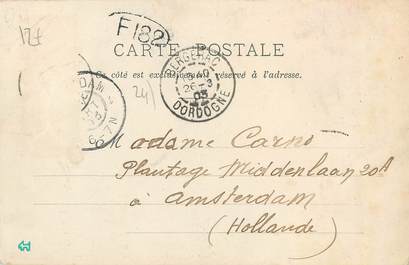 F182
CARTE POSTALE
Ce côté est exclusivement réservé à l'adresse.
BERGERAC
26-3
03
DORDOGNE
24)
Madame Carno
Plantage Middenlaan 20A
à Amsterdam
(Hollande)